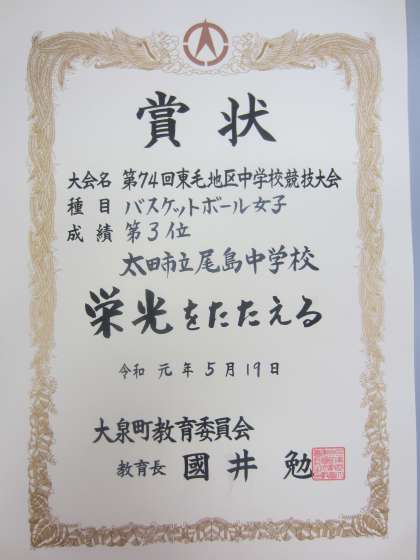 賞状
大会名 第74回東毛地区中学校競技大会
種目 バスケットボール女子
成績 第3位
太田市立尾島中学校
栄光をたたえる
令和元年5月19日
大泉町教育委員会
教育長 國井勉